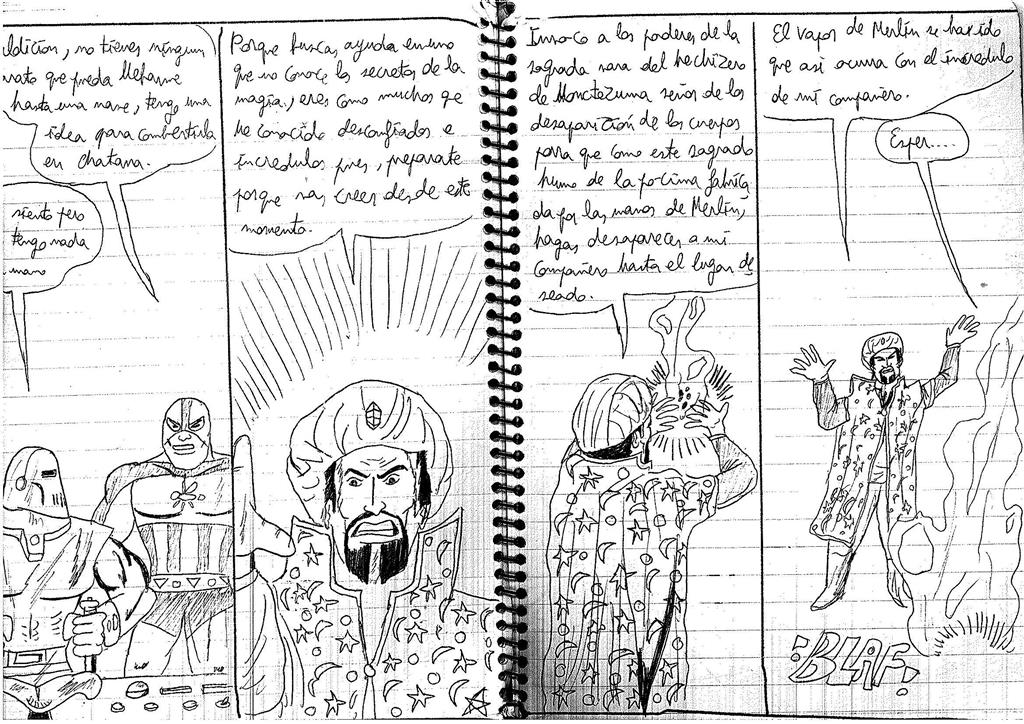 ldicion, no tienes ningun
rato que pueda llebarme
hasta una nave, tengo una
idea para combertirla
en chatarra.
siento pero
tengo nada
mano
Porque buscas ayuda en uno
que no conoce los secretos de la
magia, eres como muchos que
he conocido desconfiados e
incredulos pues, preparate
porque vas creer desde este
momento.
Invoco a los poderes de la
sagrada vara del hechizero
de Monctezuma señor de los
desaparizion de los cuerpos
para que como este sagrado
humo de la pocima fabrica
da por las manos de Merlin,
hagas desaparecer a mi
compañero hasta el lugar de
seado.
El vapor de Merlin se ha ido
que asi ocurra con el incredulo
de mi compañero.
Esper....
¡BLAF!